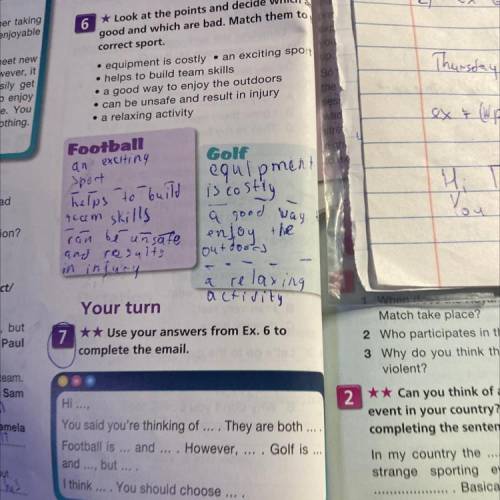 er taking
enjoyable
meet new
wever, it
sily get
o enjoy
e. You
othing.
ad
ion?
ct/
, but
Paul
team.
Sam
amela
out
6 ★ Look at the points and decide which a
good and which are bad. Match them to
correct sport.
• equipment is costly • an exciting sport
• helps to build team skills
• a good way to enjoy the outdoors
• can be unsafe and result in injury
• a relaxing activity
Football
an exciting
sport
helps to build
team skills
can be unsafe
and results
in injury
Golf
equipment
is costly
a good way
enjoy the
outdoors
a relaxing
activity
Your turn
7 ★★ Use your answers from Ex. 6 to
complete the email.
Hi ...,
You said you're thinking of ... . They are both ... .
Football is ... and ... . However, ... . Golf is ...
and ..., but ... .
I think ... . You should choose ... .
Thursday
Hi
You
1
Match take place?
2 Who participates in th
3 Why do you think th
violent?
2 ★★ Can you think of a
event in your country?
completing the senten
In my country the ...
strange sporting ev
................ . Basica